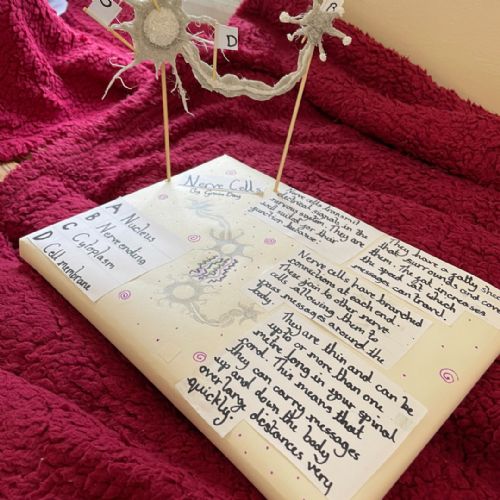 D
Nerve Cells
A Nucleus
B Nerve ending
C Cytoplasm
D Cell membrane
Nerve cells transmit
electrical signals in the
nervous system. They are
well suited for that
function because:
They have a fatty
that surrounds and
them. The fat increases
the speed at which
messages can travel.
Nerve cells have branched
connections at each end.
These join to other nerve
cells allowing them to
pass messages around the
body.
They are thin and can be
up to or more than one
metre long in your spinal
cord. This means that
they can carry messages
up and down the body
over large distances very
quickly.